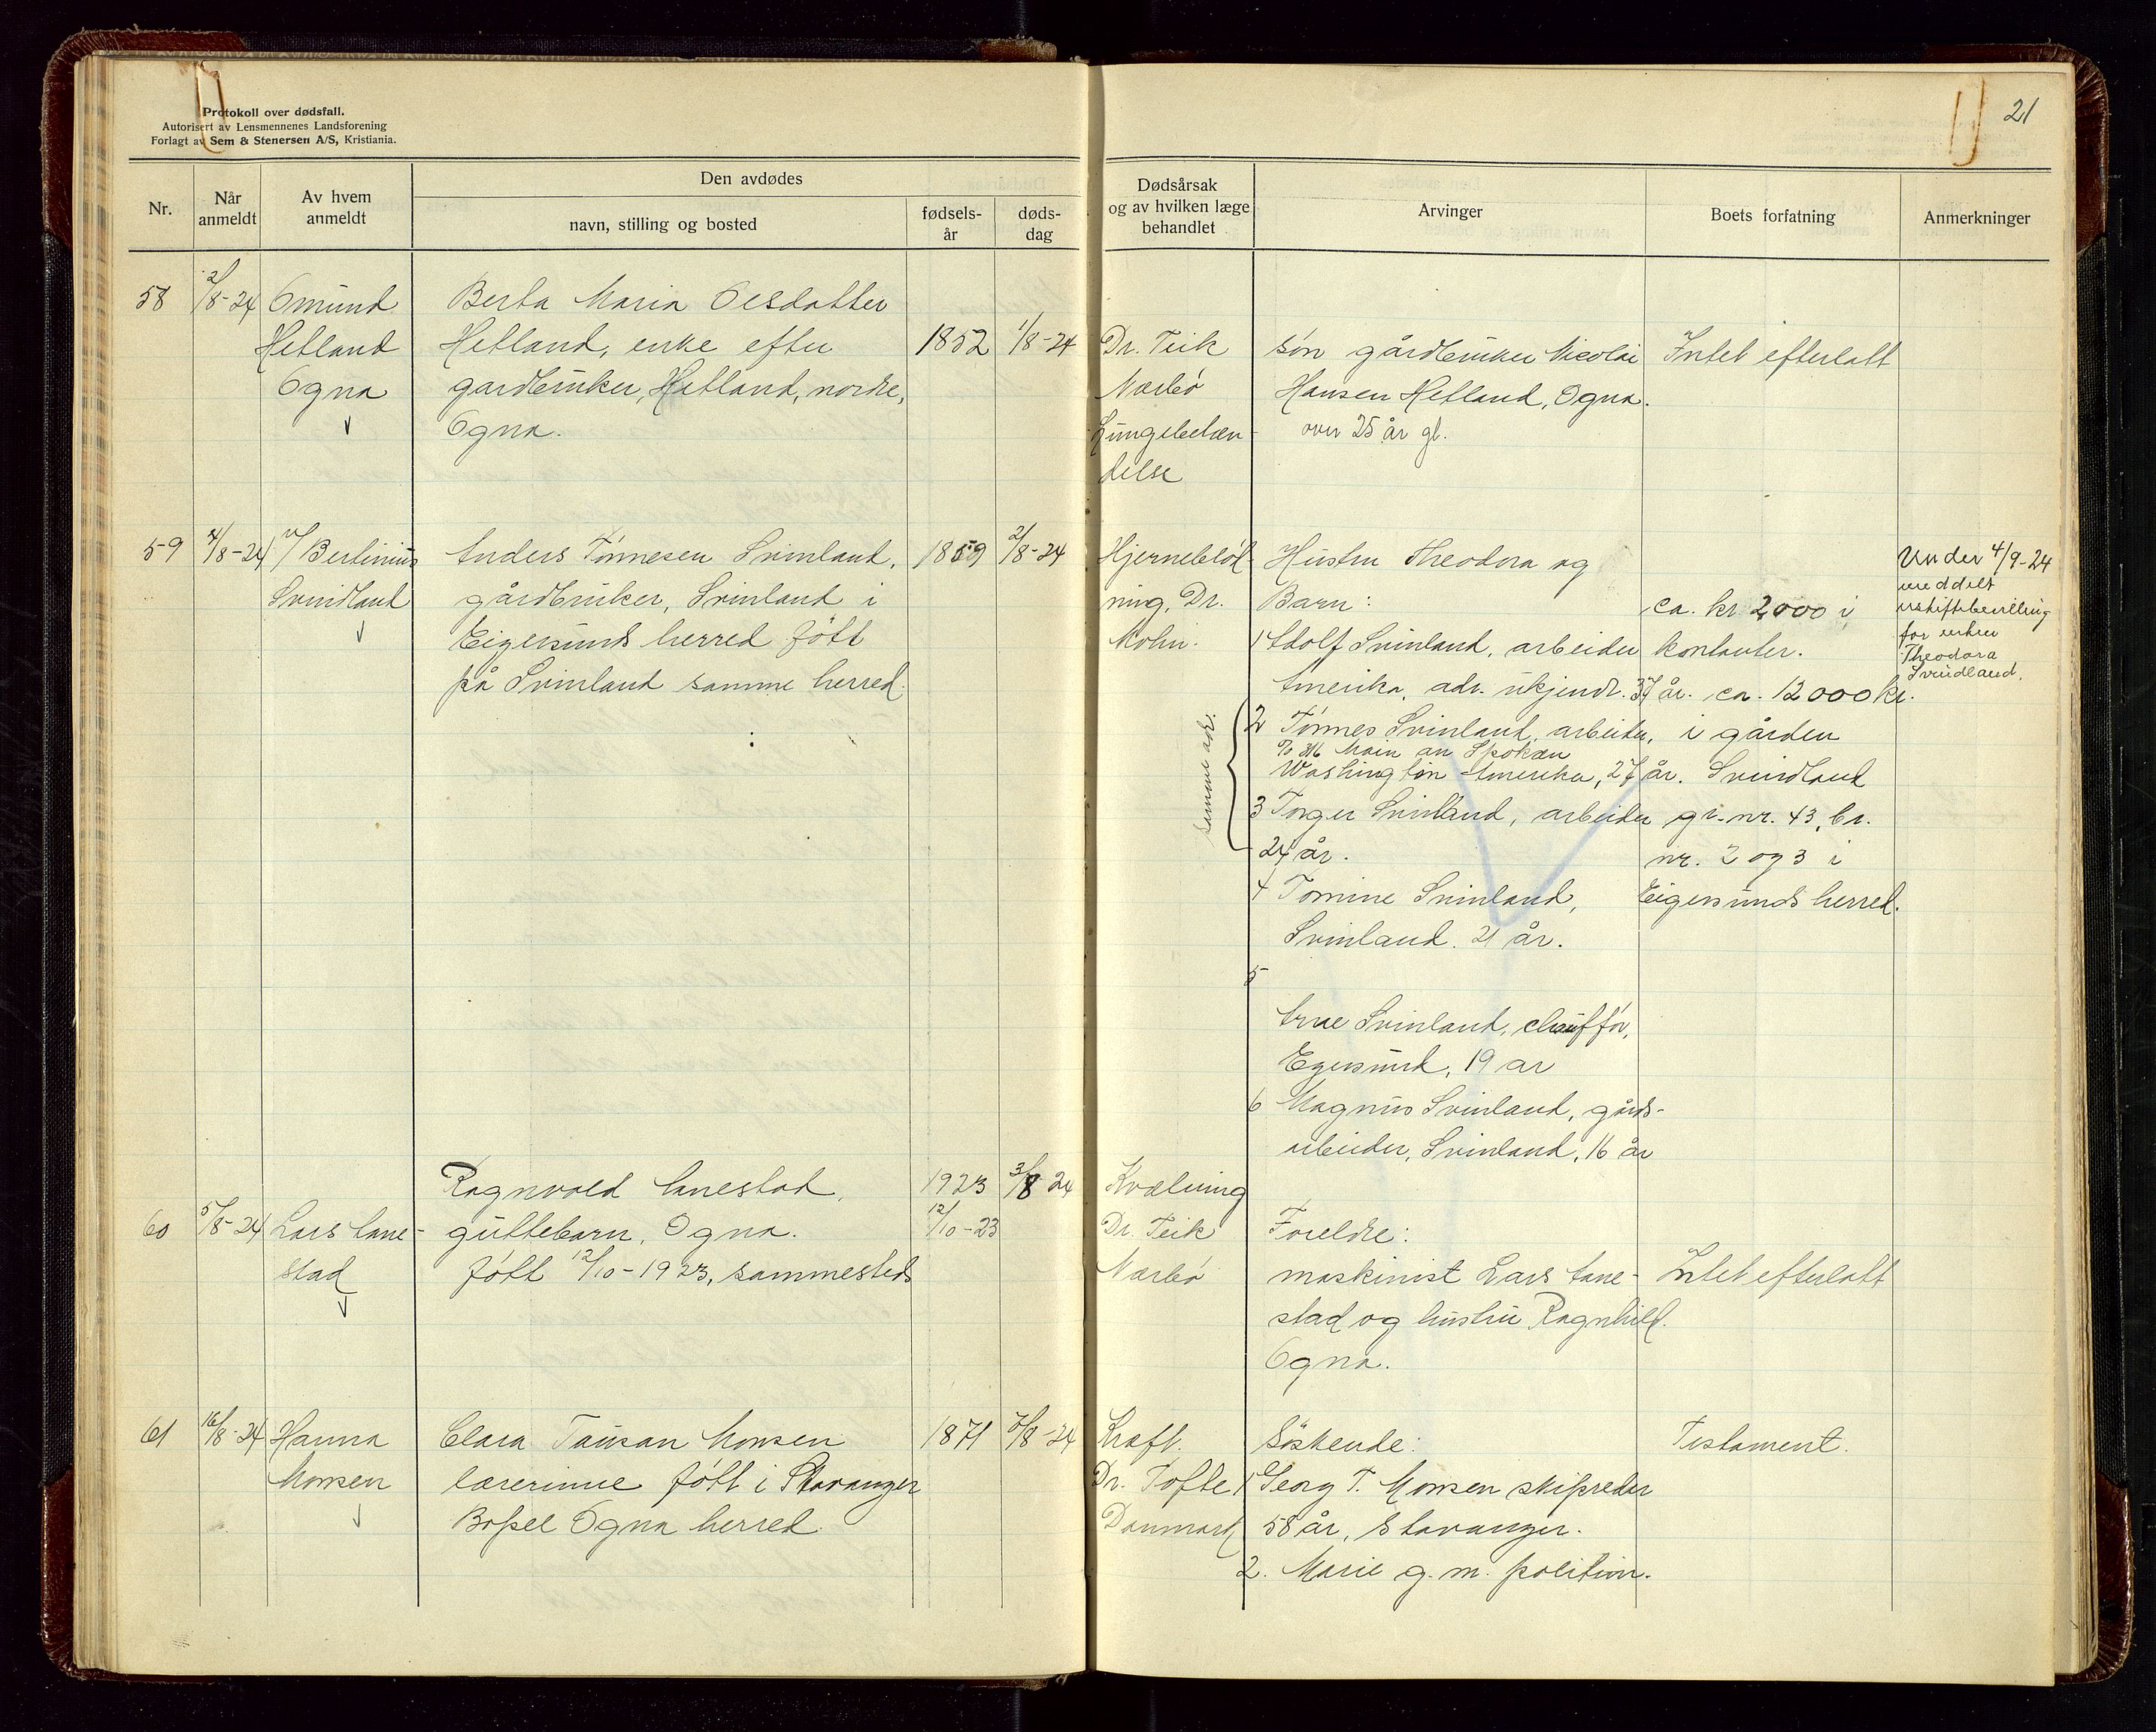 Protokoll over dødsfall.
Autorisert av Lensmennenes Landsforening
Forlagt av Sem & Stenersen A/S, Kristiania.
21
Nr.
Når anmeldt
Av hvem anmeldt
Den avdødes
navn, stilling og bosted
fødsels-år
døds-dag
Dødsårsak og av hvilken læge behandlet
Arvinger
Boets forfatning
Anmerkninger
58
2/8-24
Omund
Hetland
Ogna
Berta Maria Olsdatter
Hetland, enke efter
gardbruker, Hetland, nordre,
Ogna.
1852
1/8-24
Dr. Teik
Nærbø
Lungebetæn
delse
søn gårdbruker Nicolai
Hansen Hetland, Ogna.
over 25 år gl.
Intet efterlatt
59
4/8-24
Bertinius
Svindland
Anders Tønnesen Svinland,
gårdbruker, Svinland i
Eigersunds herred født
på Svinland samme herred.
1859
2/8-24
Hjerneblød-
ning, Dr.
Mohn.
Hustru Theodora og
Barn:
1 Adolf Svinland, arbeider
Amerika, adr. ukjendt. 37 år.
2 Tønnes Svinland, arbeider,
Main an Spokan
Washington Amerika, 27 år.
3 Torger Svinland, arbeider
24 år.
samme adr.
4 Tomine Svinland,
Svinland. 21 år.
5
Arne Svinland, chauffør,
Egersund, 19 ar
6 Magnus Svinland, gårds-
arbeider, Svinland, 16 år
ca. kr 2000 i
kontanter.
ca. 12000 kr.
i gården
Svindland
gr.nr. 43, br.
nr. 2 og 3 i
Eigersunds herred.
Under 4/9-24
meddelt
uskiftebevilling
for enken
Theodora
Svindland.
60
5/8-24
Lars Tane-
stad
Ragnvald Tanestad,
guttebarn, Ogna.
født 12/10-1923, sammesteds
1923
12/10-23
3/8 24
Kvælning
Dr. Teik
Nærbø
Foreldre:
maskinist Lars Tane-
stad og hustru Ragnhild.
Ogna.
Intet efterlatt
61
16/8-24
Hanna
Monsen
Clara Tausan Monsen
lærerinne født i Stavanger
Bopel Ogna herred.
1871
7/8-24
Kræft.
Dr. Tofte
Danmark
Søskende:
1 Georg T. Monsen skipsreder
58 år, Stavanger.
2. Marie g. m. politim.
Testament.